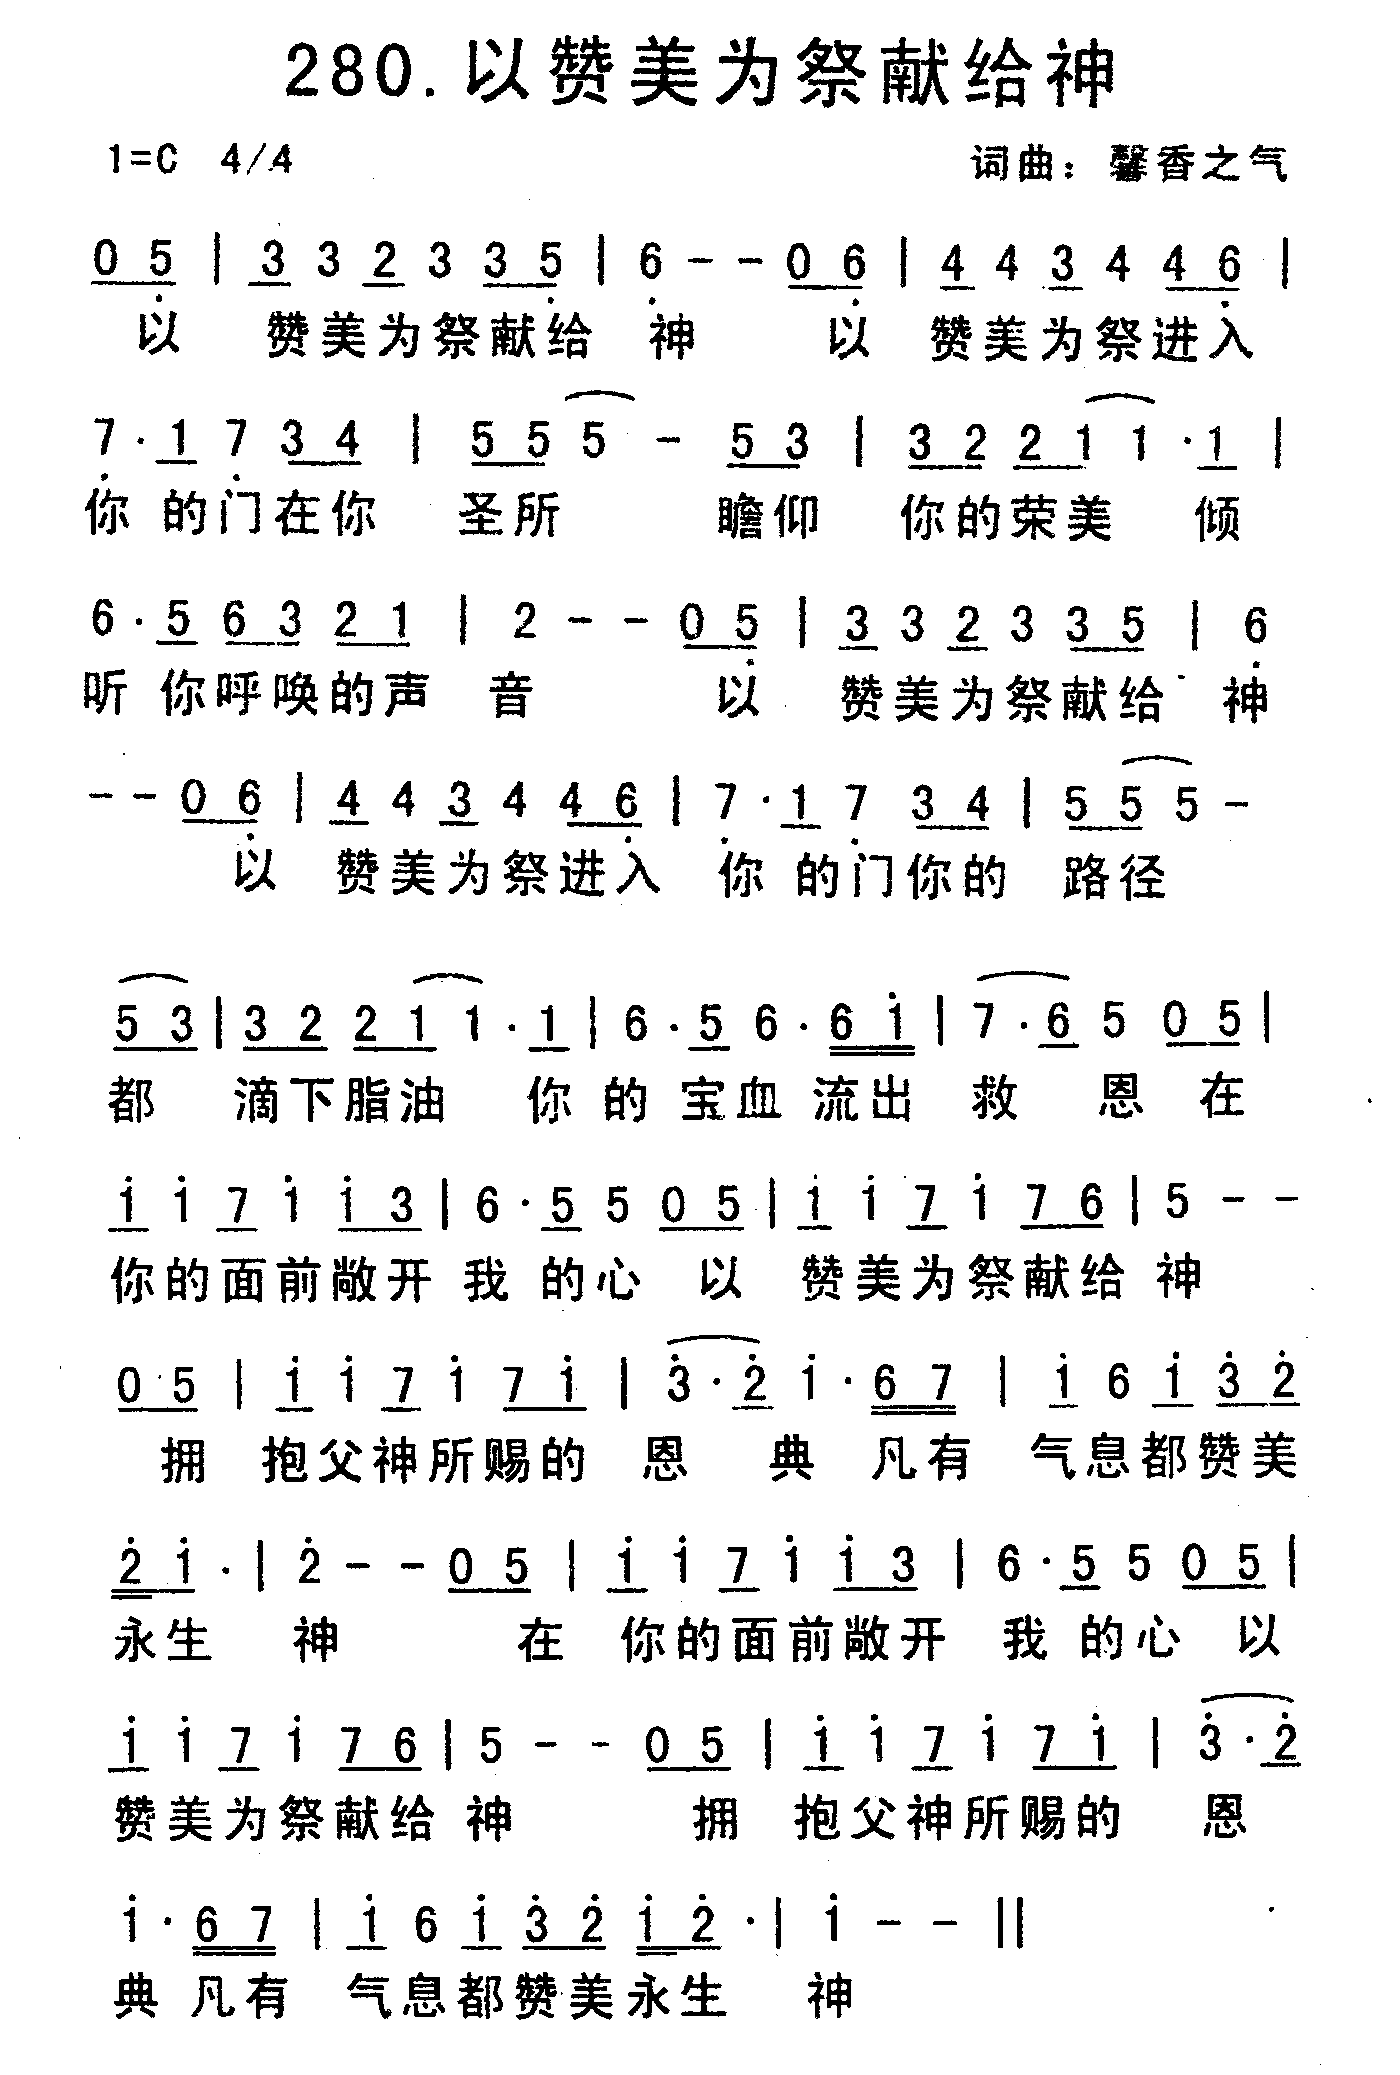 280.以赞美为祭献给神
1=C 4/4 词曲：馨香之气
0 5 | 3 3 2 3 3 5 | 6 - - 0 6 | 4 4 3 4 4 6 |
以 赞美为祭献给 神 以 赞美为祭进入
7 · 1 7 3 4 | 5 5 5 - 5 3 | 3 2 2 1 1 · 1 |
你 的门在你 圣所 瞻仰 你的荣美 倾
6 · 5 6 3 2 1 | 2 - - 0 5 | 3 3 2 3 3 5 | 6
听 你呼唤的声 音 以 赞美为祭献给 神
- - 0 6 | 4 4 3 4 4 6 | 7 · 1 7 3 4 | 5 5 5 -
以 赞美为祭进入 你 的门你的 路径
5 3 | 3 2 2 1 1 · 1 | 6 · 5 6 · 6 i | 7 · 6 5 0 5 |
都 滴下脂油 你 的 宝血 流出 救 恩 在
i i 7 i i 3 | 6 · 5 5 0 5 | i i 7 i 7 6 | 5 - -
你的面前敞开 我 的心 以 赞美为祭献给 神
0 5 | i i 7 i 7 i | 3 · 2 i · 6 7 | i 6 i 3 2
拥 抱父神所赐的 恩 典 凡有 气息都赞美
2 i · | 2 - - 0 5 | i i 7 i i 3 | 6 · 5 5 0 5 |
永生 神 在 你的面前敞开 我 的心 以
i i 7 i 7 6 | 5 - - 0 5 | i i 7 i 7 i | 3 · 2
赞美为祭献给 神 拥 抱父神所赐的 恩
i · 6 7 | i 6 i 3 2 i 2 · | i - - ||
典 凡有 气息都赞美永生 神